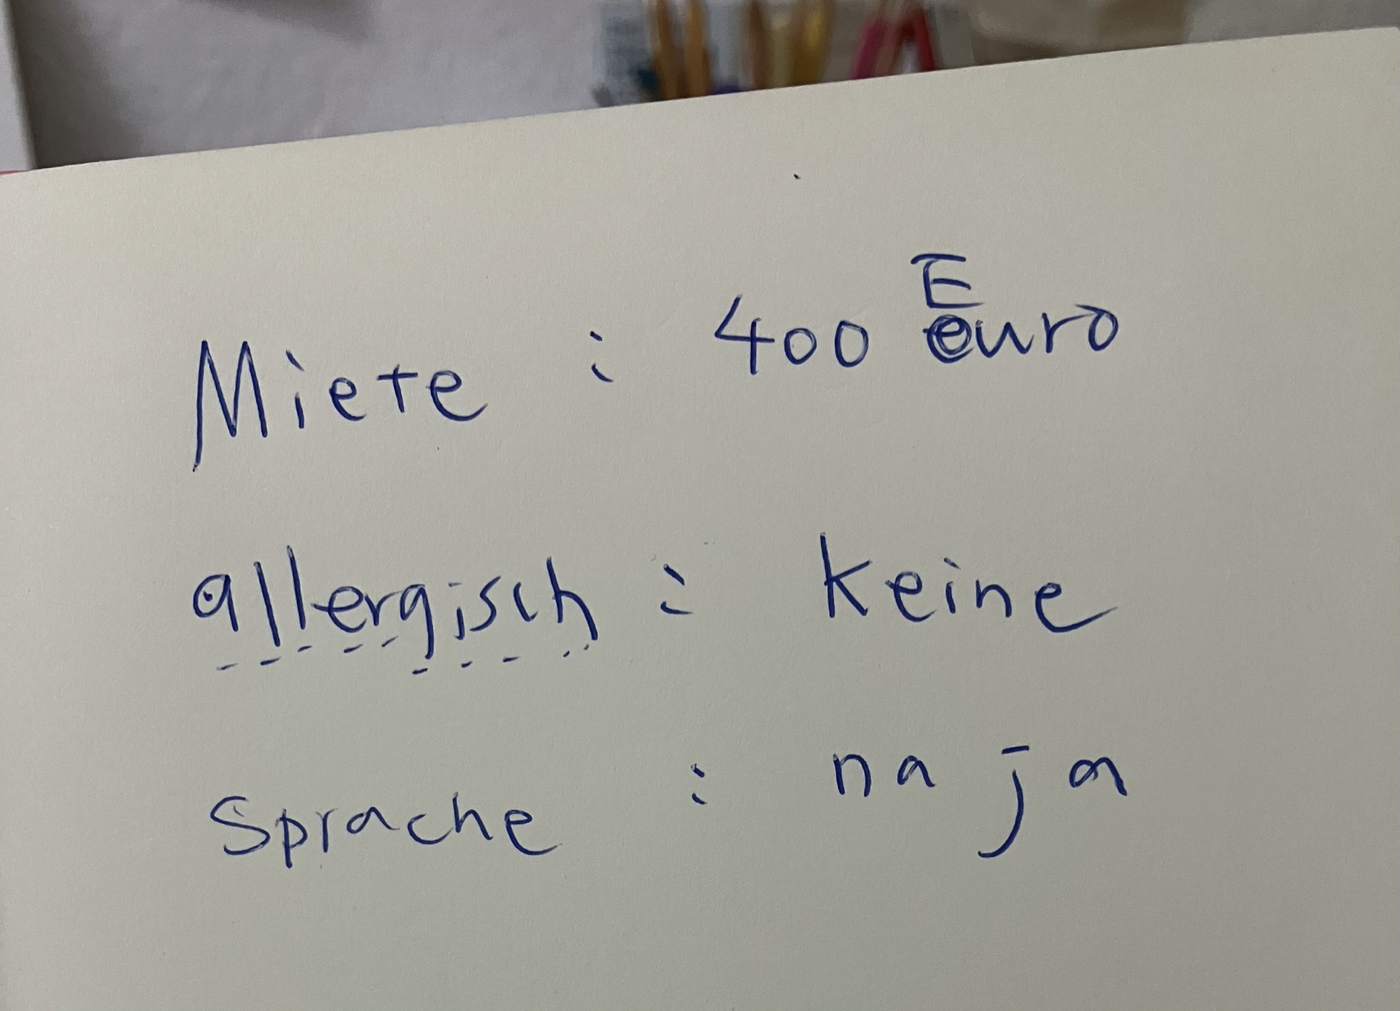 Miete : 400 Euro
allergisch : keine
Sprache : na ja